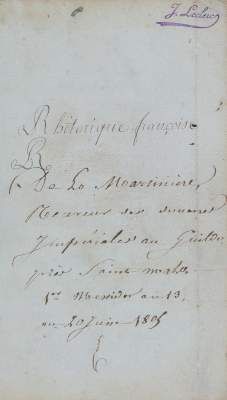 J. Leclerc
Rhétorique françoise
R
De La Martiniere,
Receveur des douanes
Impériales au Guildo
près Saint malo
1er Messidor an 13,
ou 20 Juin 1805